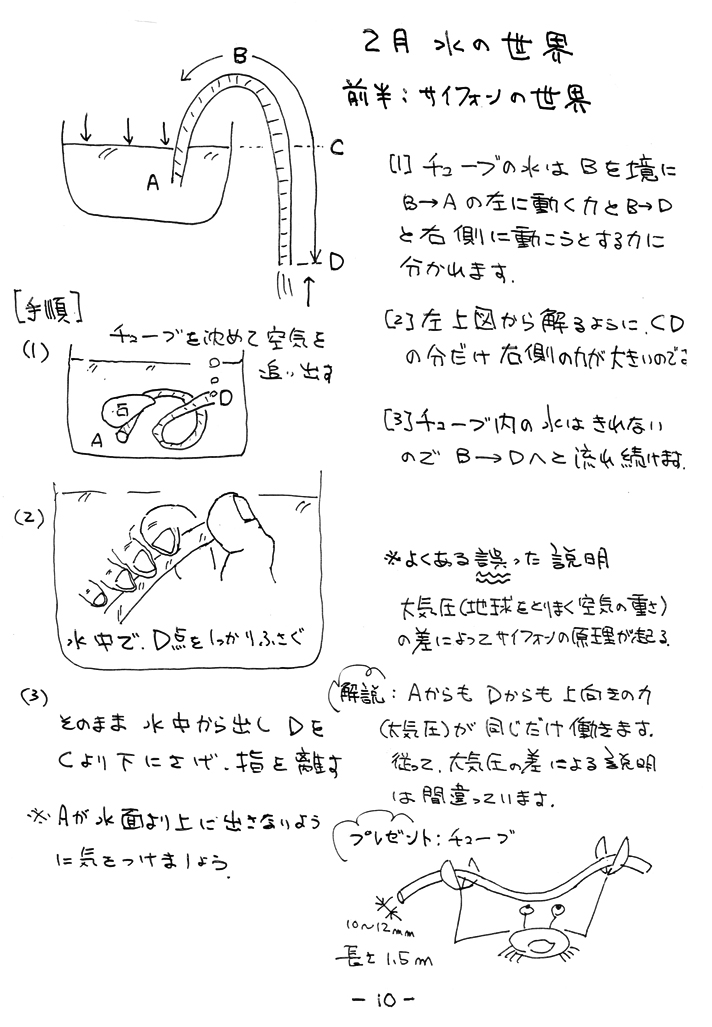 2月 水の世界
前半:サイフォンの世界
B
C
A
D
[1]チューブの水は Bを境に
B→Aの左に動く力とB→D
と右側に動こうとする力に
分かれます.
[2]左上図から解るように、CD
の分だけ右側の力が大きいので
[3]チューブ内の水はきれない
ので B→Dへと流れ続けます.
[手順]
(1)
チューブを沈めて空気を
追い出す
石
A
D
(2)
水中で、D点をしっかりふさぐ
(3)
そのまま水中から出しDを
Cより下にさげ、指を離す
※Aが水面より上に出さないよう
に気をつけましょう.
※よくある誤った説明
大気圧(地球をとりまく空気の重さ)
の差によってサイフォンの原理が起る.
解説:AからもDからも上向きの力
(大気圧)が同じだけ働きます.
従って、大気圧の差による説明
は間違っています.
プレゼント:チューブ
10~12mm
長さ1.5m
-10-